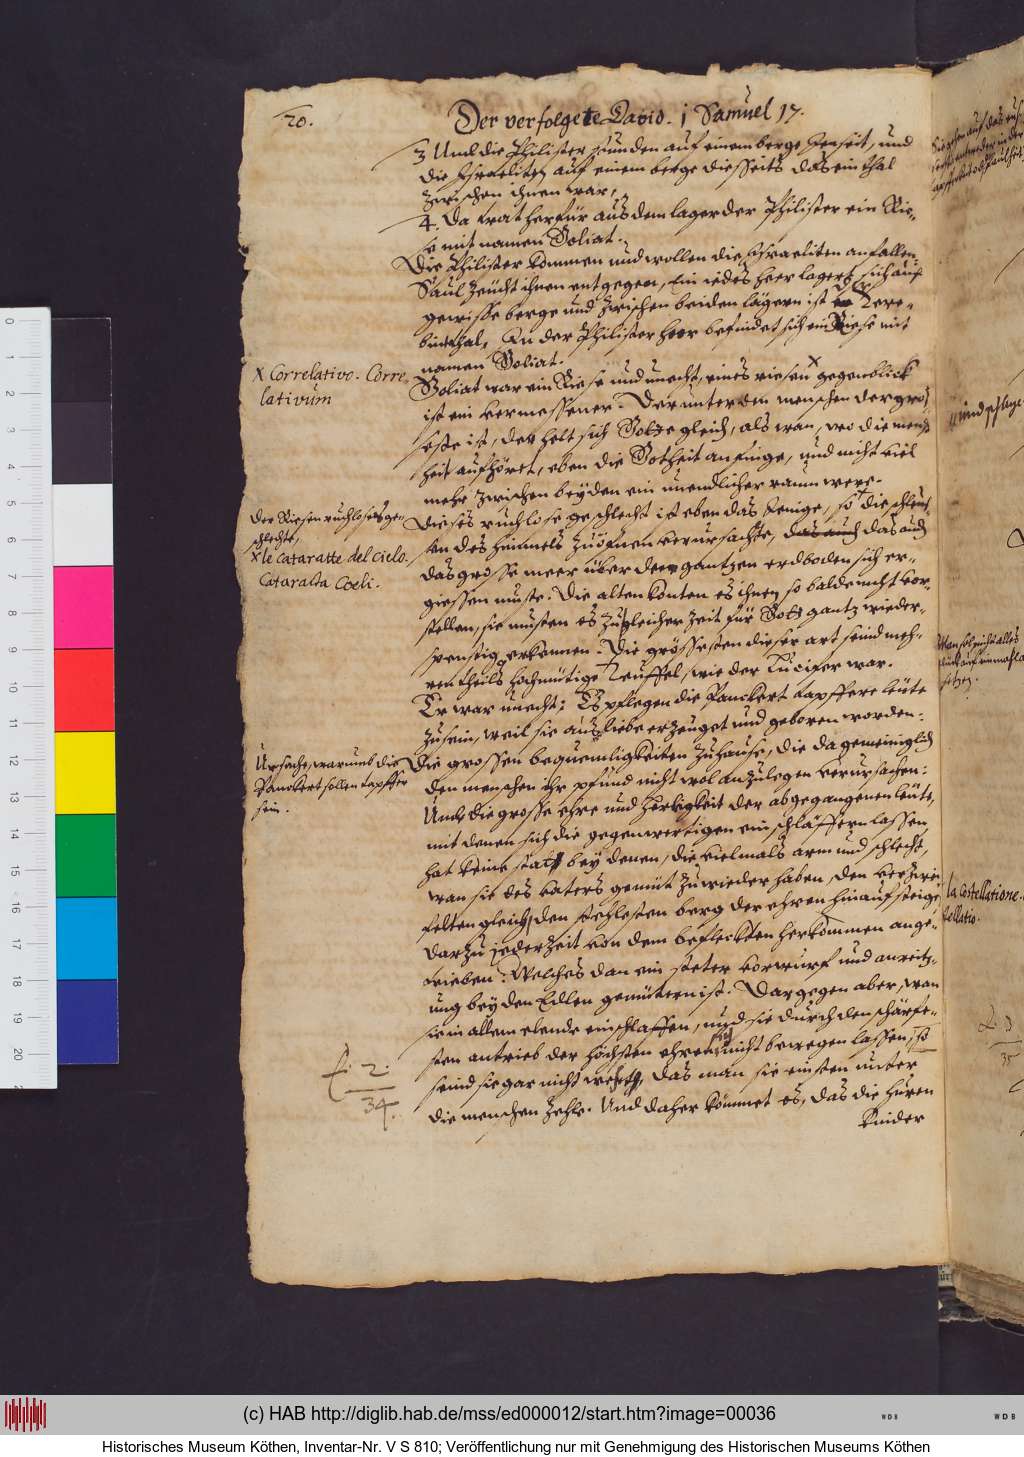 20.
Der verfolgete David. 1 Samuel 17.
3 Und die Philister stunden auf einem berge jenseit, und
die Israeliten auf einem berge diesseits das ein thal
zwischen ihnen war,
4. Da trat herfür aus dem lager der Philister ein Rie-
se mit namen Goliat.
Die Philister kommen und wollen die Israeliten anfallen.
Saul zeücht ihnen entgegen, Ein iedes heer lagert sich auf
gewisse berge und zwischen beiden lägern ist der Tere-
binthal, In der Philister heer befindet sich ein Riese mit
namen Goliat.
X Correlativo. Corre-
lativum
Goliat war ein Riese und unecht, eines riesen X gegenblick
ist ein vermessener. Der unter den menschen der grös-
seste ist, der helt sich Gotte gleich, als wan, wo die mensch-
heit aufhöret, eben die Gotheit anfinge, und nicht viel
mehr zwischen beyden ein unendlicher raum were.
Der Riesen ruchloses ge-
schlechte,
X le cataratte del cielo.
Cataracta Coeli.
Dieses ruchlose geschlecht ist eben das jenige, so die schleus-
sen des himmels zuöfnen verursachte, das auch das auch
das grosse meer über den gantzen erdboden sich er-
giessen muste. Die alten konten es ihnen so balde nicht vor-
stellen, sie musten es zugleicher zeit für Gott gantz wieder-
spenstig erkennen. Die grössesten dieser art seind meh-
rentheils hochmütige teuffel, wie der Lucifer war.
Er war unecht: Es pflegen die Panckert tapffere leüte
zusein, weil sie aus liebe erzeuget und geboren worden.
Ursache, warumb die
Panckert sollen tapffer
sein.
Die grossen bequemligkeiten zuhause, die da gemeiniglich
den menschen ihr pfund nicht wol anzulegen verursachen:
Und die grosse ehre und herligkeit der abgegangenen leüte,
mit denen sich die gegenwertigen einschläffern lassen,
hat keine stat bey denen, die vielmals arm und schlecht,
wan sie des vaters gemüt zuwieder haben, den verzwei-
felten gleich, den stehlesten berg der ehren hinauf steigen
darzu jederzeit von dem befleckten herkommen ange-
trieben: Welches dan ein steter vorwurf und anreitz-
ung bey den Edlen gemütern ist. Dargegen aber, wan
sie in allem elende einschlaffen, und sie durch den schärfe-
sten antrieb der höchsten ehren sich nicht bewegen lassen, so
seind sie gar nicht wehrt, das man sie einsten unter
die menschen zehle. Und daher kömmet es, das die huren
kinder
f. 2.
34.
und schlage
Man sol nicht alles
glück auf einmahl
setzen.
la costellatione.
stellatio.
f. 3
35
(c) HAB http://diglib.hab.de/mss/ed000012/start.htm?image=00036
WDB
WDB
Historisches Museum Köthen, Inventar-Nr. V S 810; Veröffentlichung nur mit Genehmigung des Historischen Museums Köthen
0
1
2
3
4
5
6
7
8
9
10
11
12
13
14
15
16
17
18
19
20